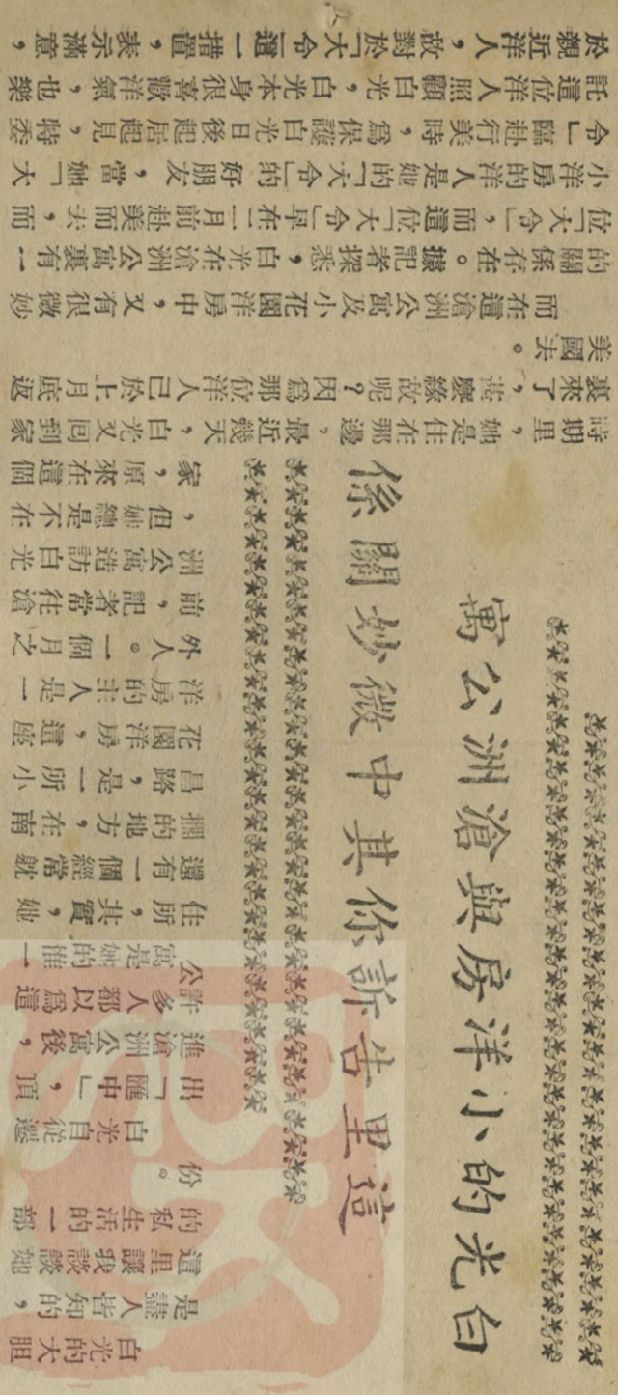 白光的小洋房與滄洲公寓
這里告訴你其中微妙關係
白光的大胆
是盡人皆知的，
這里讓我談談她
的私生活的一部
份。
白光自從遷
出「匯中」，頂
進滄洲公寓後，
許多人都以爲這
公寓是她的惟一
住所，其實，她
還有一個經常就
擱的地方，在南
昌路，是一所小
花園洋房，這座
洋房的主人是一
外人。一個月之
前，記者常往滄
洲公寓造訪白光
，但她總是不在
家，原來在這個
時期里，她是住在那邊，最近幾天，白光又回到家
裏來了，甚麼緣故呢？因爲那位洋人已於上月底返
美國去。
而在這滄洲公寓及小花園洋房中，又有很微妙
的關係存在。據記者探悉，白光在滄洲公寓裏有一
位「大令」，而這位「大令」早在二月前赴美而去，而
小洋房的洋人是她的「大令」的好朋友，當她「大
令」臨赴美行時，爲保護白光日後起居起見，特委
託這位洋人照顧白光，白光本身很喜歡洋氣，也樂
於親近洋人，故對於「大令」這一措置，表示滿意，